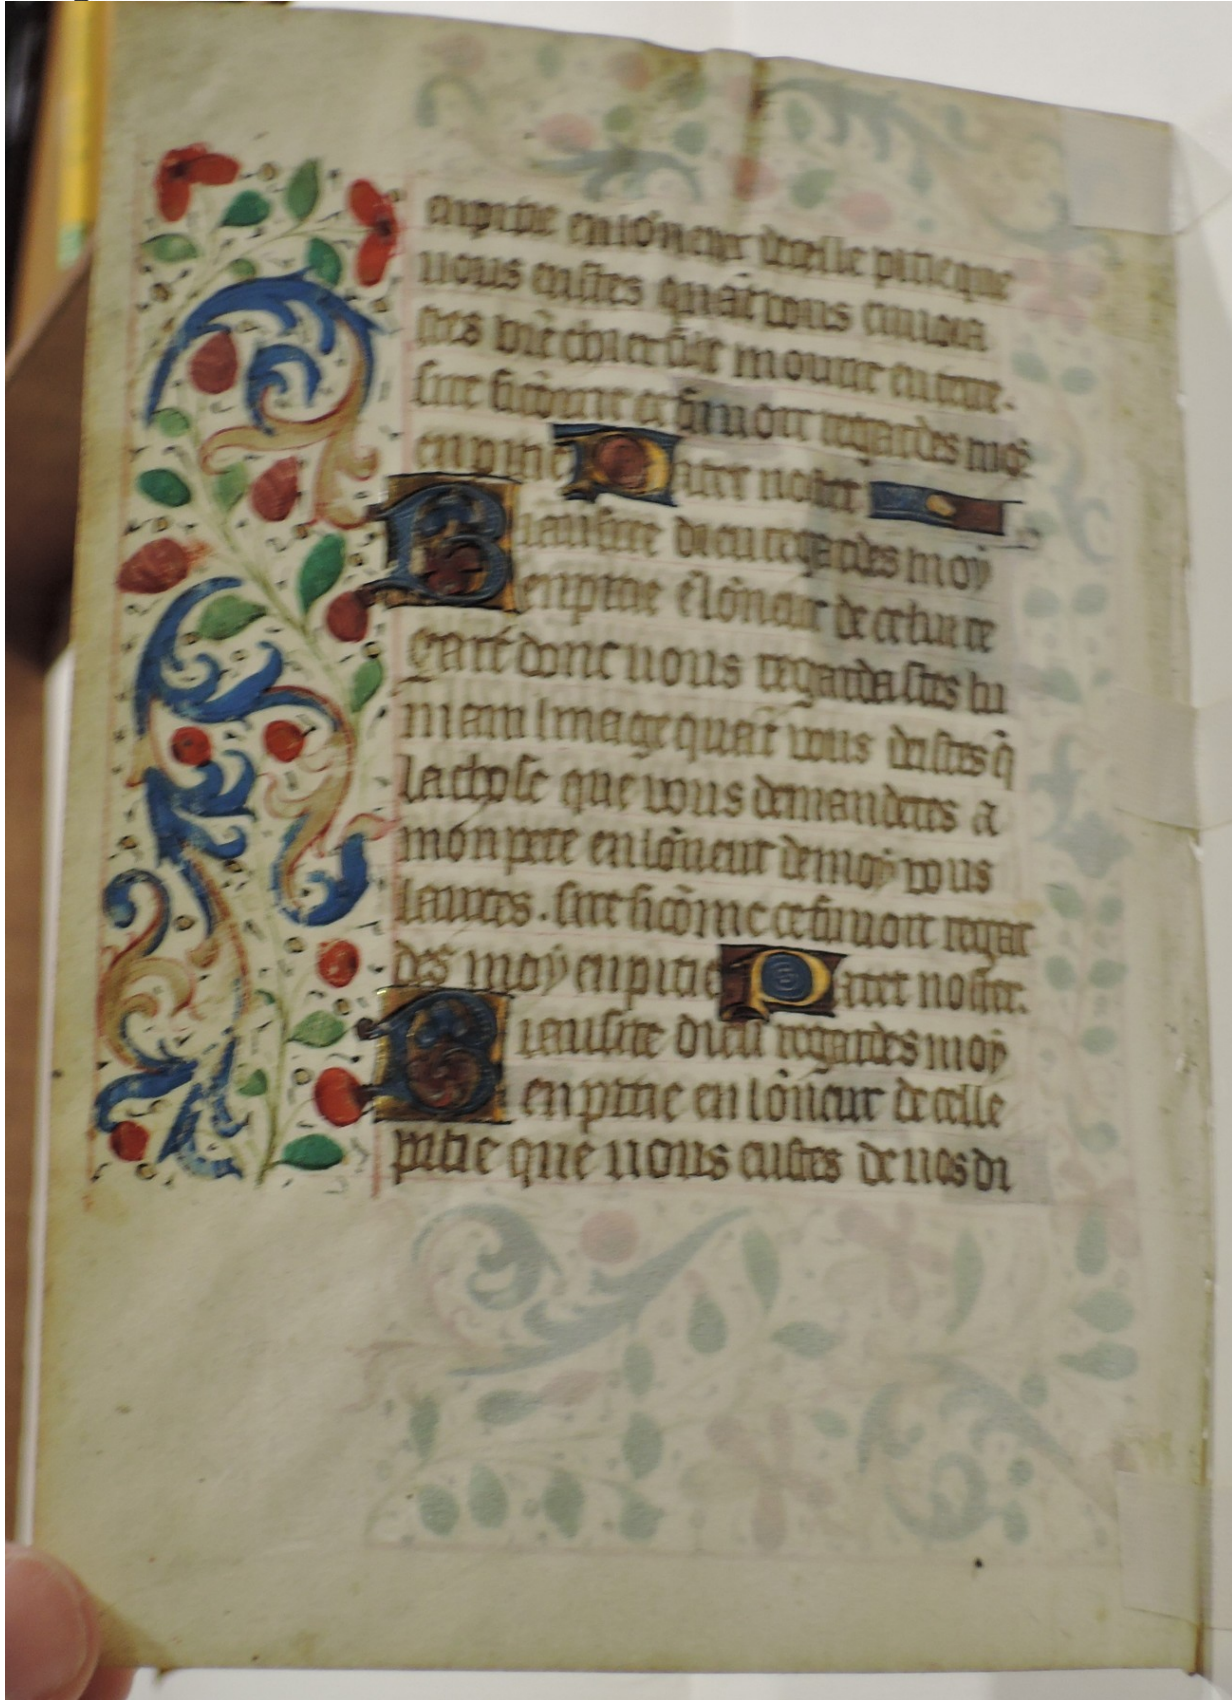 en pitie en lõneur de celle pitie que
uous eustes quãt vous enuoia
stes vr̃e chier filz mourir en terre.
sire si cõme ce fu uoir regardes moy
en pitie Pater noster
Biau sire dieu regardes moy
en pitie ẽ lõneur de celui re
gart dont uous regardastes hu
main lmage quãt vous deistes q̃
la chose que vous demanderes a
mon pere en lõneur de moy vous
l'aures. sire si cõme ce fu uoir regar
des moy en pitie Pater noster.
Biau sire dieu regardes moy
en pitie en lõneur de celle
pitie que uous eustes de nos di